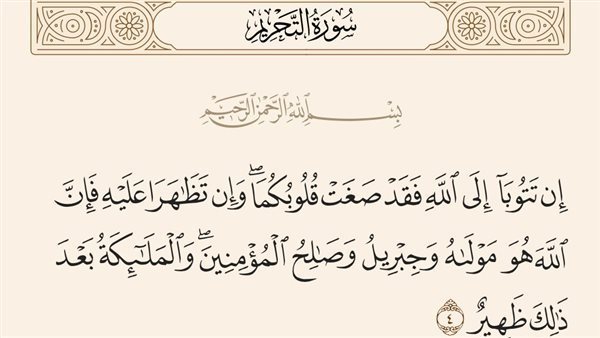 سُورَةُ التَّحْرِيمِ
بِسْمِ ٱللَّهِ ٱلرَّحْمَٰنِ ٱلرَّحِيمِ
إِن تَتُوبَآ إِلَى ٱللَّهِ فَقَدْ صَغَتْ قُلُوبُكُمَاۖ وَإِن تَظَٰهَرَا عَلَيْهِ فَإِنَّ
ٱللَّهَ هُوَ مَوْلَىٰهُ وَجِبْرِيلُ وَصَٰلِحُ ٱلْمُؤْمِنِينَۖ وَٱلْمَلَٰٓئِكَةُ بَعْدَ
ذَٰلِكَ ظَهِيرٌ ٤